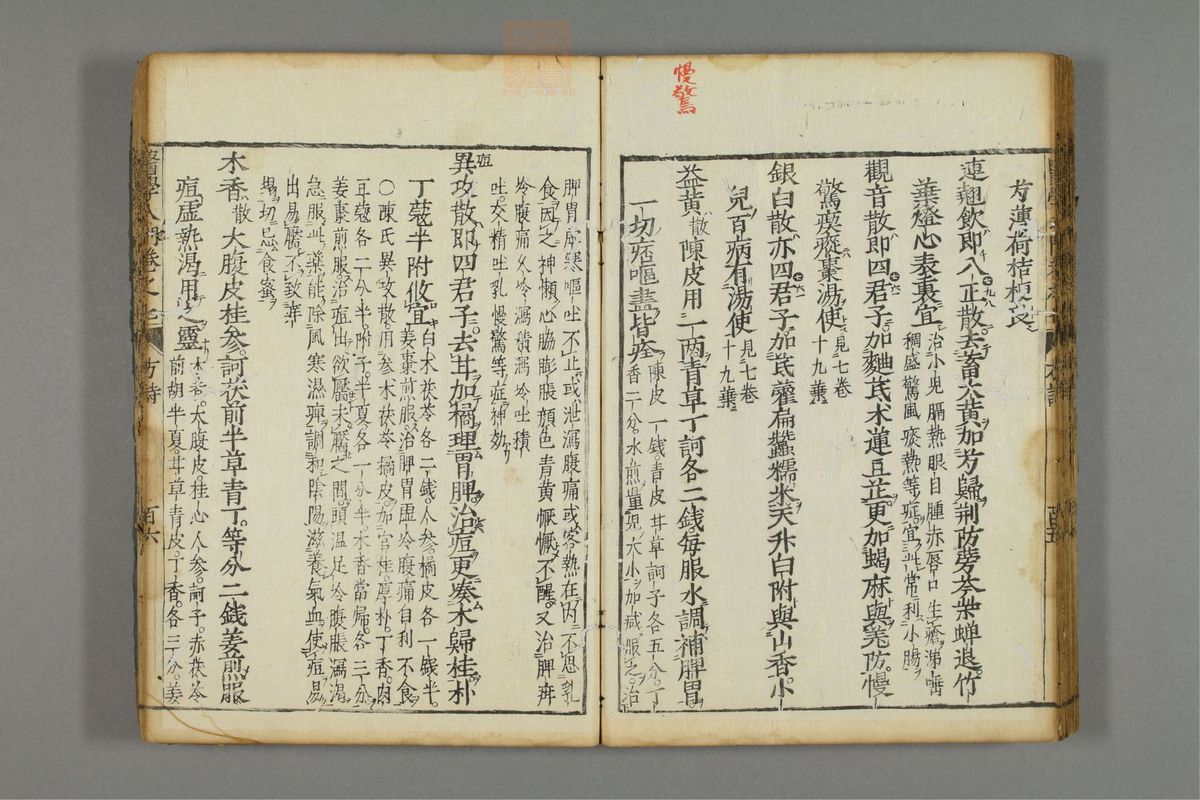 慢驚
芳薄荷桔梗良
連翹飲即八正散去蓄大黄加芳歸荆防蒡芩柴蝉退竹
葉燈心表裏宜
治小児膈熱眼目腫赤唇口生瘡涕
稠盛驚風痰熱等症宜此常利小腸
觀音散即四君子加麯芪木蓮豆芷更加蝎麻與羗防慢
驚瘈瘲棗湯使
見七卷
十九葉
銀白散亦四君子加芪藿扁蠶糯米天升白附與山香小
兒百病有湯使
見七卷
十九葉
益黄散陳皮用一兩青草丁訶各二錢毎服水調補脾胃
一切痞嘔盡皆痊
陳皮一錢青皮甘草訶子各五分丁
香二分水煎量児大小加减服之治
脾胃虚寒嘔吐不止或泄瀉腹痛或客熱在内不思乳
食因之神懶心脇膨脹顔色青黄懨懨不醒又治脾疳
冷腹痛久冷瀉積瀉冷吐積
吐交精吐乳慢驚等症神効
痘
異攻散即四君子去甘加橘理胃脾治痘更奏木歸桂朴
丁蔻半附攸宜
白木茯苓各二錢人参橘皮各一錢半
姜棗煎服治脾胃虚冷腹痛自利不食
○陳氏異攻散用参木茯苓橘皮加官桂厚朴丁香肉
豆蔻各二分半附子半夏各一分半木香當歸各三分
姜棗煎服治痘出欲靨未靨之間頭温足冷腹脹瀉渇
急服此藥能除風寒濕痺調和陰陽滋養氣血使痘易
出易靨不致痒
塌切忌食蜜
木香散大腹皮桂参訶茯前半草青丁等分二錢姜煎服
痘虚熱渇用之靈
木香大腹皮桂心人参訶子赤茯苓
前胡半夏甘草青皮丁香各三分姜
方詩
百六